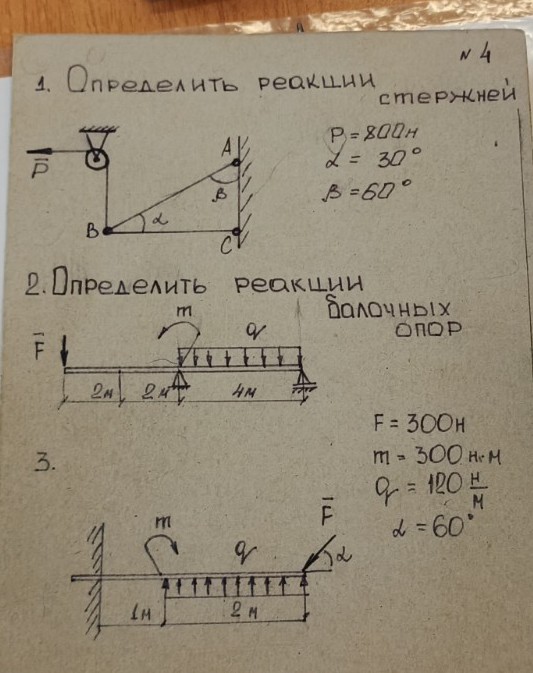 N 4
1. Определить реакции
стержней
P = 800н
α = 30°
β = 60°
P̅
A
β
B
α
C
2. Определить реакции
балочных
опор
F̅
m
q
2м
2м
4м
F = 300н
m = 300 н·м
q = 120 н/м
α = 60°
3.
m
q
F̅
α
1м
2м